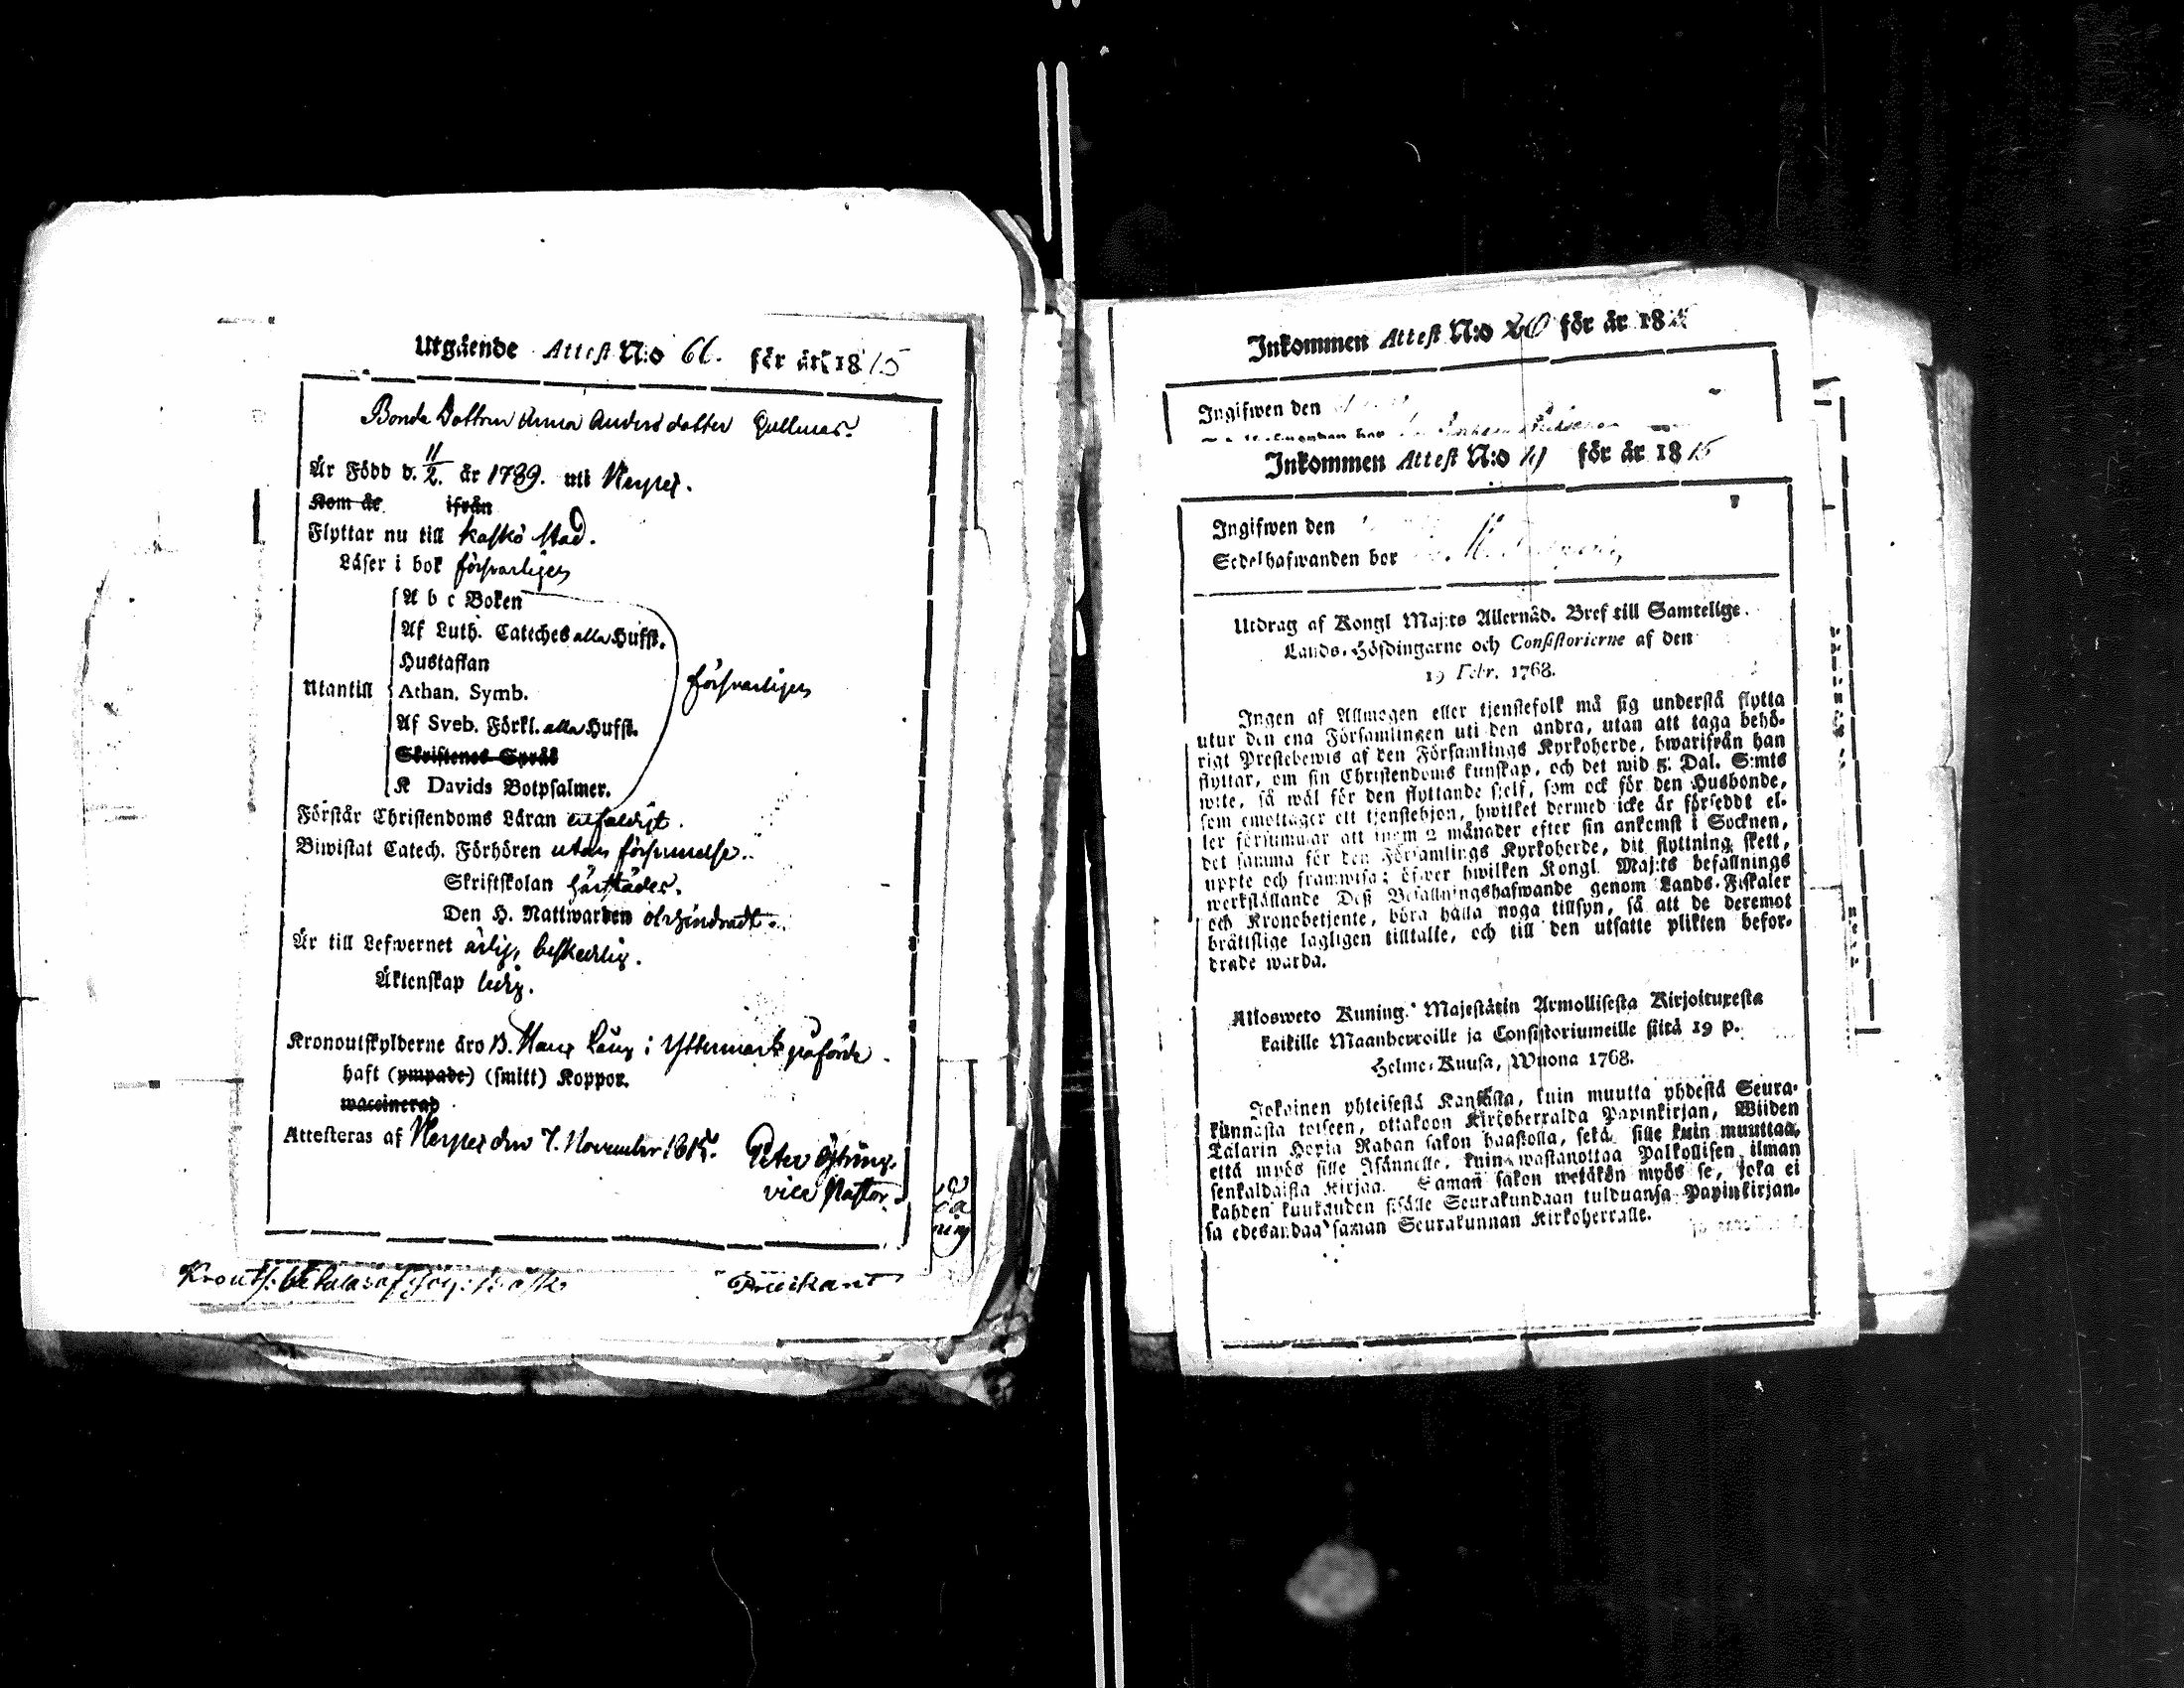 Utgående Attest N:o 66. för år 1815
Bonde Dottren Anna Andersdotter Gullmes.
Är Född d. 11/2. år 1789. uti Nerpes.
Kom år ifrån
Flyttar nu till Kaskö stad.
Läser i bok försvarligen
A b c Boken
Af Luth. Cateches alla Hufst.
Hustaflan
Utantill Athan. Symb. försvarligen
Af Sveb. Förkl. alla Hufst.
Skriftenes Språk
K Davids Botpsalmer.
Förstår Christendoms Läran enfaldigt.
Biwistat Catech. Förhören utan försummelse.
Skriftskolan härstädes.
Den H. Nattwarden ohindradt.
Är till Lefwernet ärlig, beskedlig.
Äktenskap ledig.
Kronoutskylderne äro B. Hans Lång i Yttermark påförde.
haft (ympade) (smitt) Koppor.
waccinerad
Attesteras af Nerpes den 7. November 1815.
Peter Östring.
vice Pastor.
Predikant
Inkommen Attest N:o 20 för år 18
Ingifwen den
Inkommen Attest N:o 19 för år 1815
Ingifwen den
Sedelhafwanden bor
Utdrag af Kongl Maj:ts Allernåd. Bref till Samtelige
Lands-Höfdingarne och Consistorierne af den
19 Febr. 1768.
Ingen af Allmogen eller tjenstefolk må sig understå flytta
utur den ena Församlingen uti den andra, utan att taga behö-
rigt Prestebewis af den Församlings Kyrkoherde, hwarifrån han
flyttar, om sin Christendoms kunskap, och det wid 5: Dal. S:mts
wite, så wäl för den flyttande sjelf, som ock för den Husbonde,
som emottager ett tjenstehjon, hwilket dermed icke är försedt el-
ler försummar att inom 2 månader efter sin ankomst i Socknen,
det samma för den Församlings Kyrkoherde, dit flyttning skett,
uppte och framwisa; öfwer hwilken Kongl Maj:ts befallnings
werkställande Deß Befallningshafwande genom Lands-Fiskaler
och Kronobetjente, böra hålla noga tillsyn, så att de deremot
bråttslige lagligen tilltalte, och till den utsatte plikten befor-
drade warda.
Ullosweto Kuning. Majestätin Armollisesta Kirjoituxesta
kaikille Maanherroille ja Consistoriumeille siitä 19 p.
Helme-Kuusa, Wuona 1768.
Jokainen yhteisestä Kansasta, kuin muutta yhdestä Seura-
kunnasta toiseen, ottakoon Kirkoherralda Papinkirjan, Wiiden
Talarin Hopia Rahan sakon haastolla, sekä sille kuin muuttaa,
että myös sille Isännälle, kuin wastanottaa Palkollisen ilman
senkaldaista Kirjaa. Saman sakon wetäkön myös se, joka ei
kahden kuukauden sisälle Seurakundaan tulduansa Papinkirjan-
sa edesandaa saman Seurakunnan Kirkoherralle.